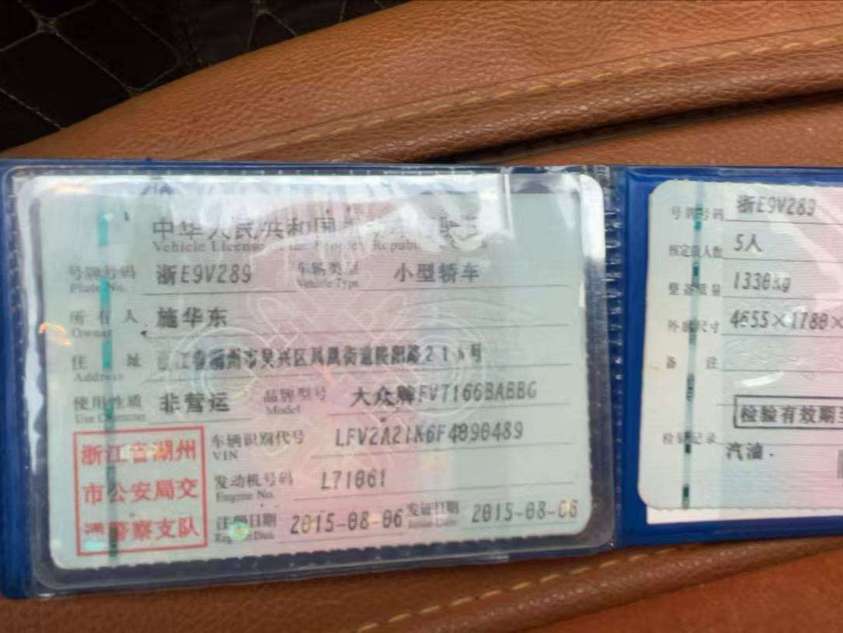 中华人民共和国
Vehicle License
号牌号码 浙E9V289 车辆类型 小型轿车
Plate No. Vehicle Type
所有人 施华东
Owner
住址 江省湖州市吴兴区凤凰街道
Address
使用性质 非营运 品牌型号 大众牌FV7166BABBG
Use Character Model
车辆识别代号 LFV2A21K6F4090489
VIN
发动机号码 L71061
Engine No.
注册日期 2015-08-06 发证日期 2015-08-06
浙江省湖州
市公安局交
通警察支队
号牌号码 浙E9V289
核定载人数 5人
整备质量 1330kg
外廓尺寸 4655×1780×
备注
检验有效期至
检验记录
汽油.